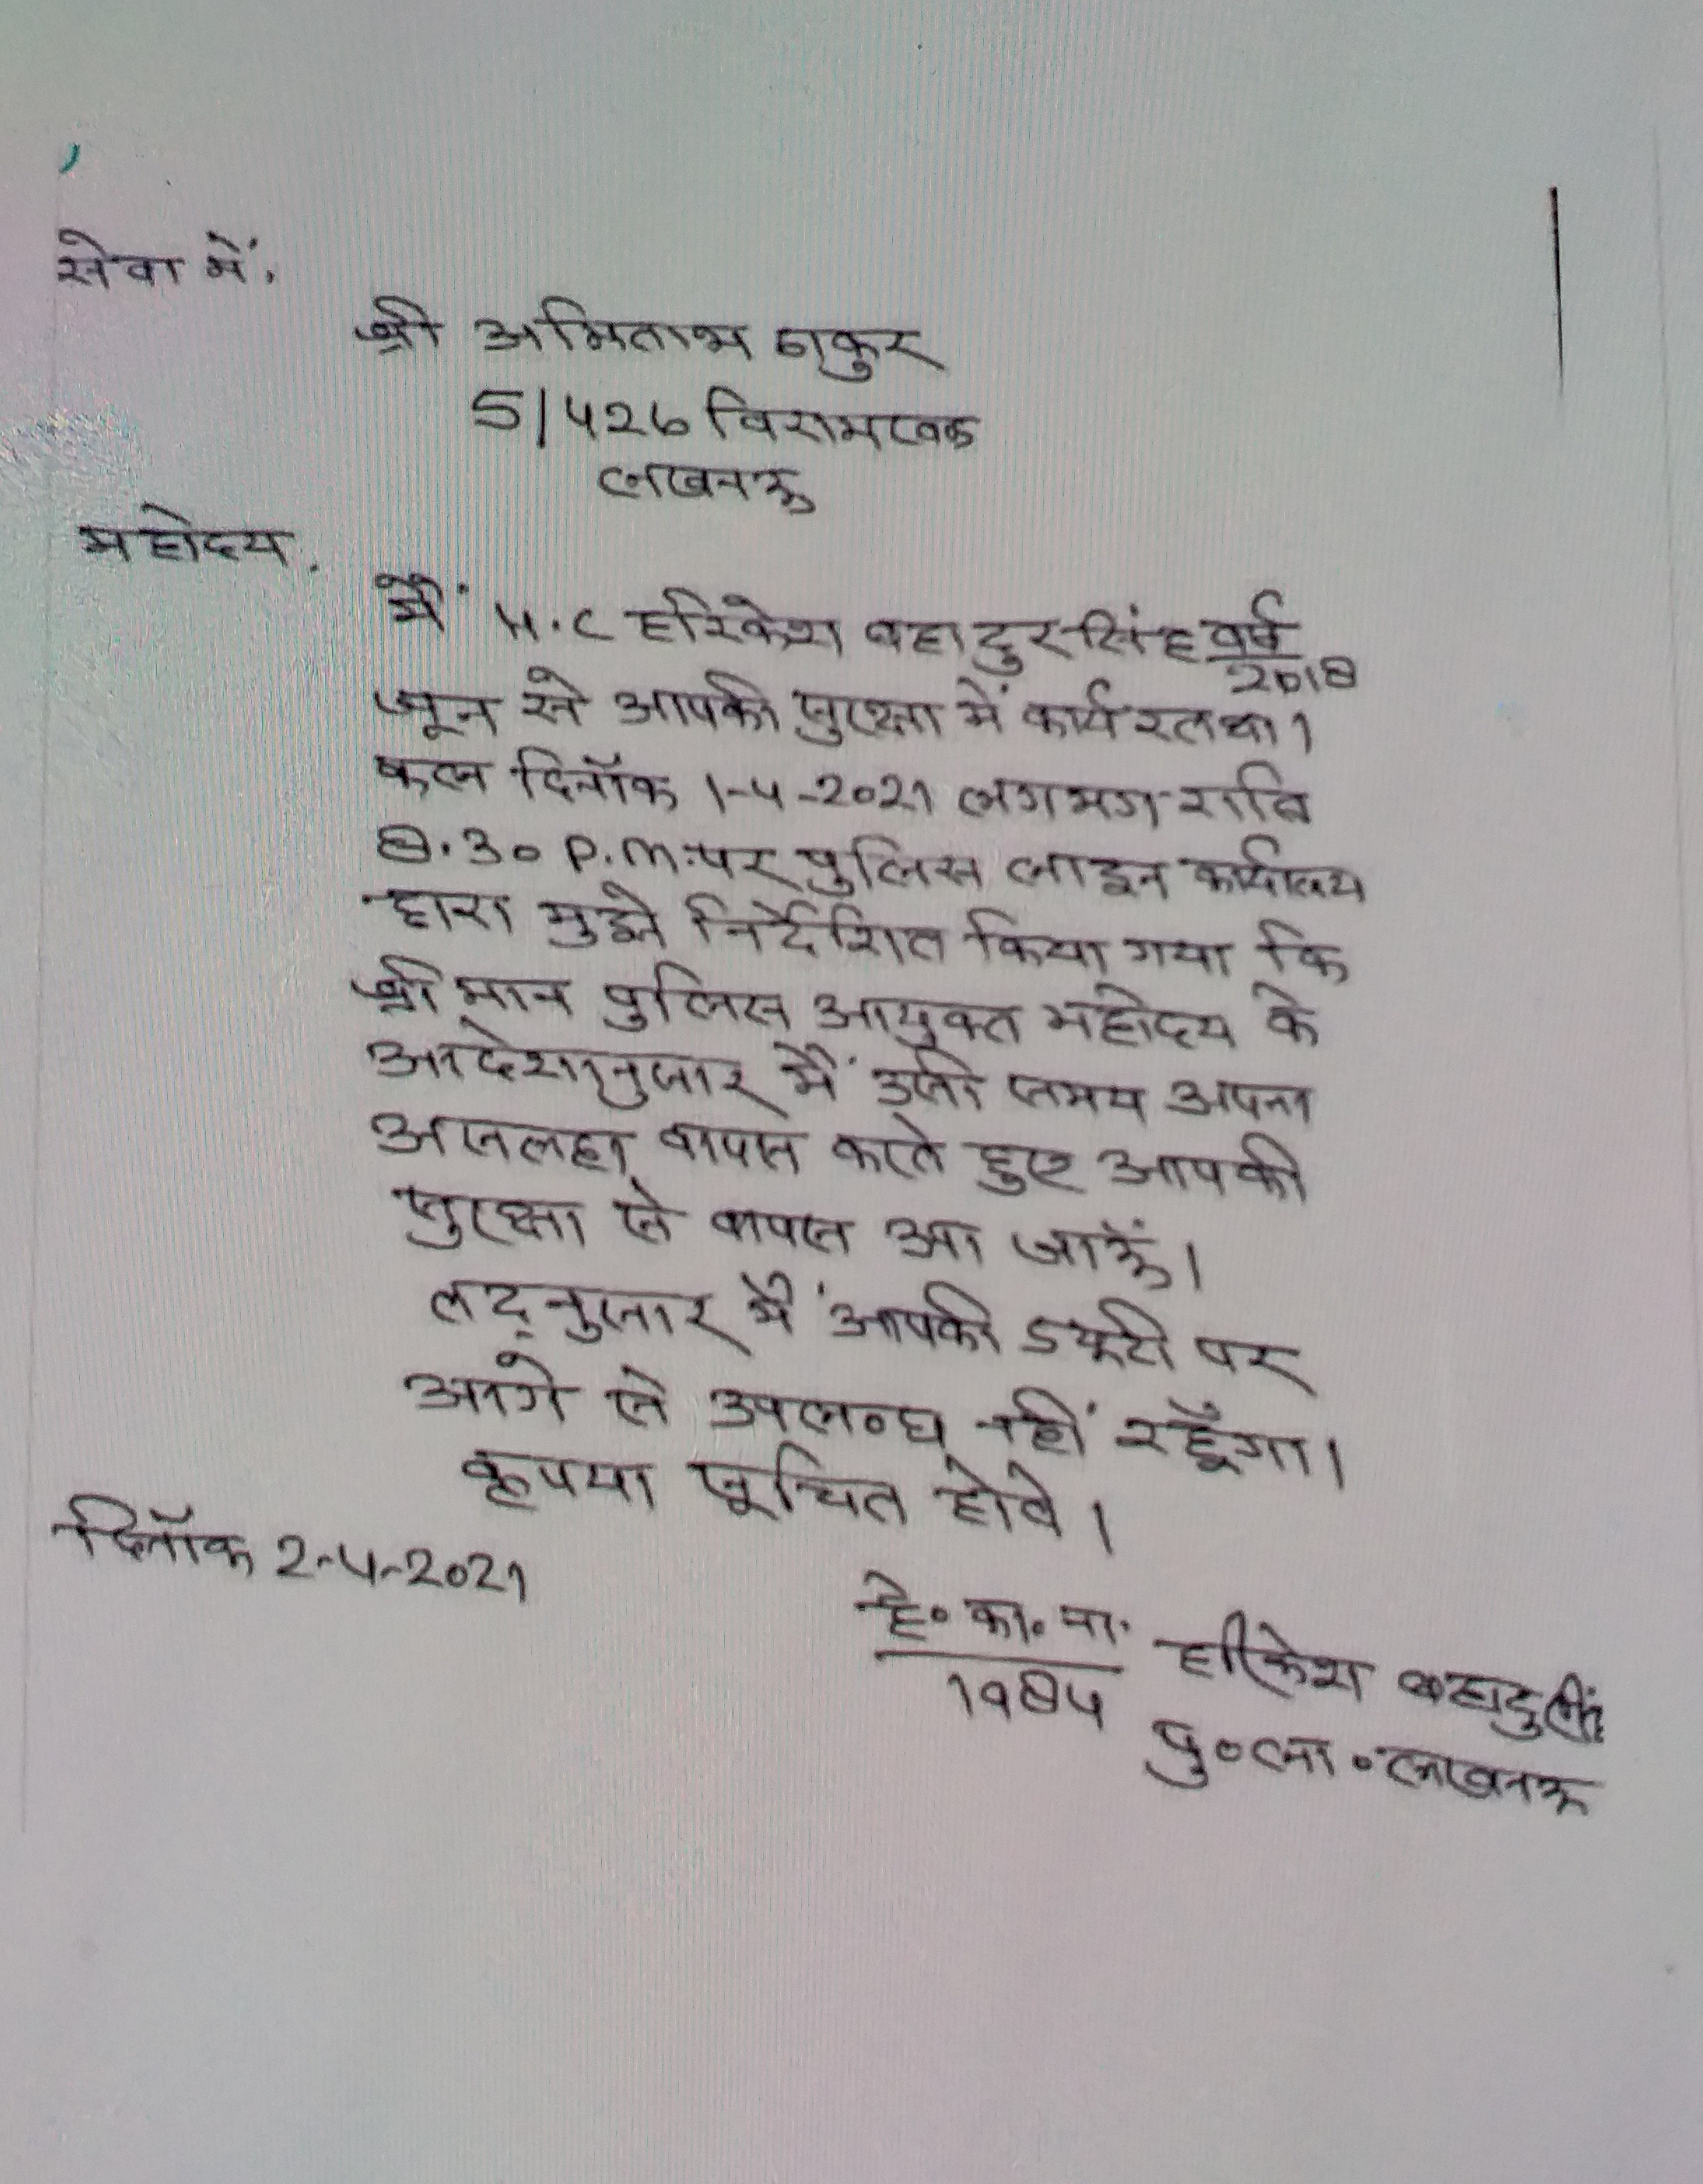 सेवा में,
श्री अमिताभ ठाकुर
5/426 विरामखण्ड
लखनऊ
महोदय,
मैं H.C हरिकेश बहादुर सिंह वर्ष
2018
जून से आपकी सुरक्षा में कार्यरत था।
कल दिनॉक 1-4-2021 लगभग रात्रि
8.30 P.m. पर पुलिस लाइन कार्यालय
द्वारा मुझे निर्देशित किया गया कि
श्रीमान पुलिस आयुक्त महोदय के
आदेशानुसार मैं उसी समय अपना
असलहा वापस करते हुए आपकी
सुरक्षा से वापस आ जाऊँ।
तद्नुसार मैं आपकी ड्यूटी पर
आगे से उपलब्ध नहीं रहूँगा।
कृपया सूचित होवे।
दिनॉक 2-4-2021
हे॰ का॰ ना. हरिकेश बहादुर सिंह
1984
पु॰ला॰लखनऊ